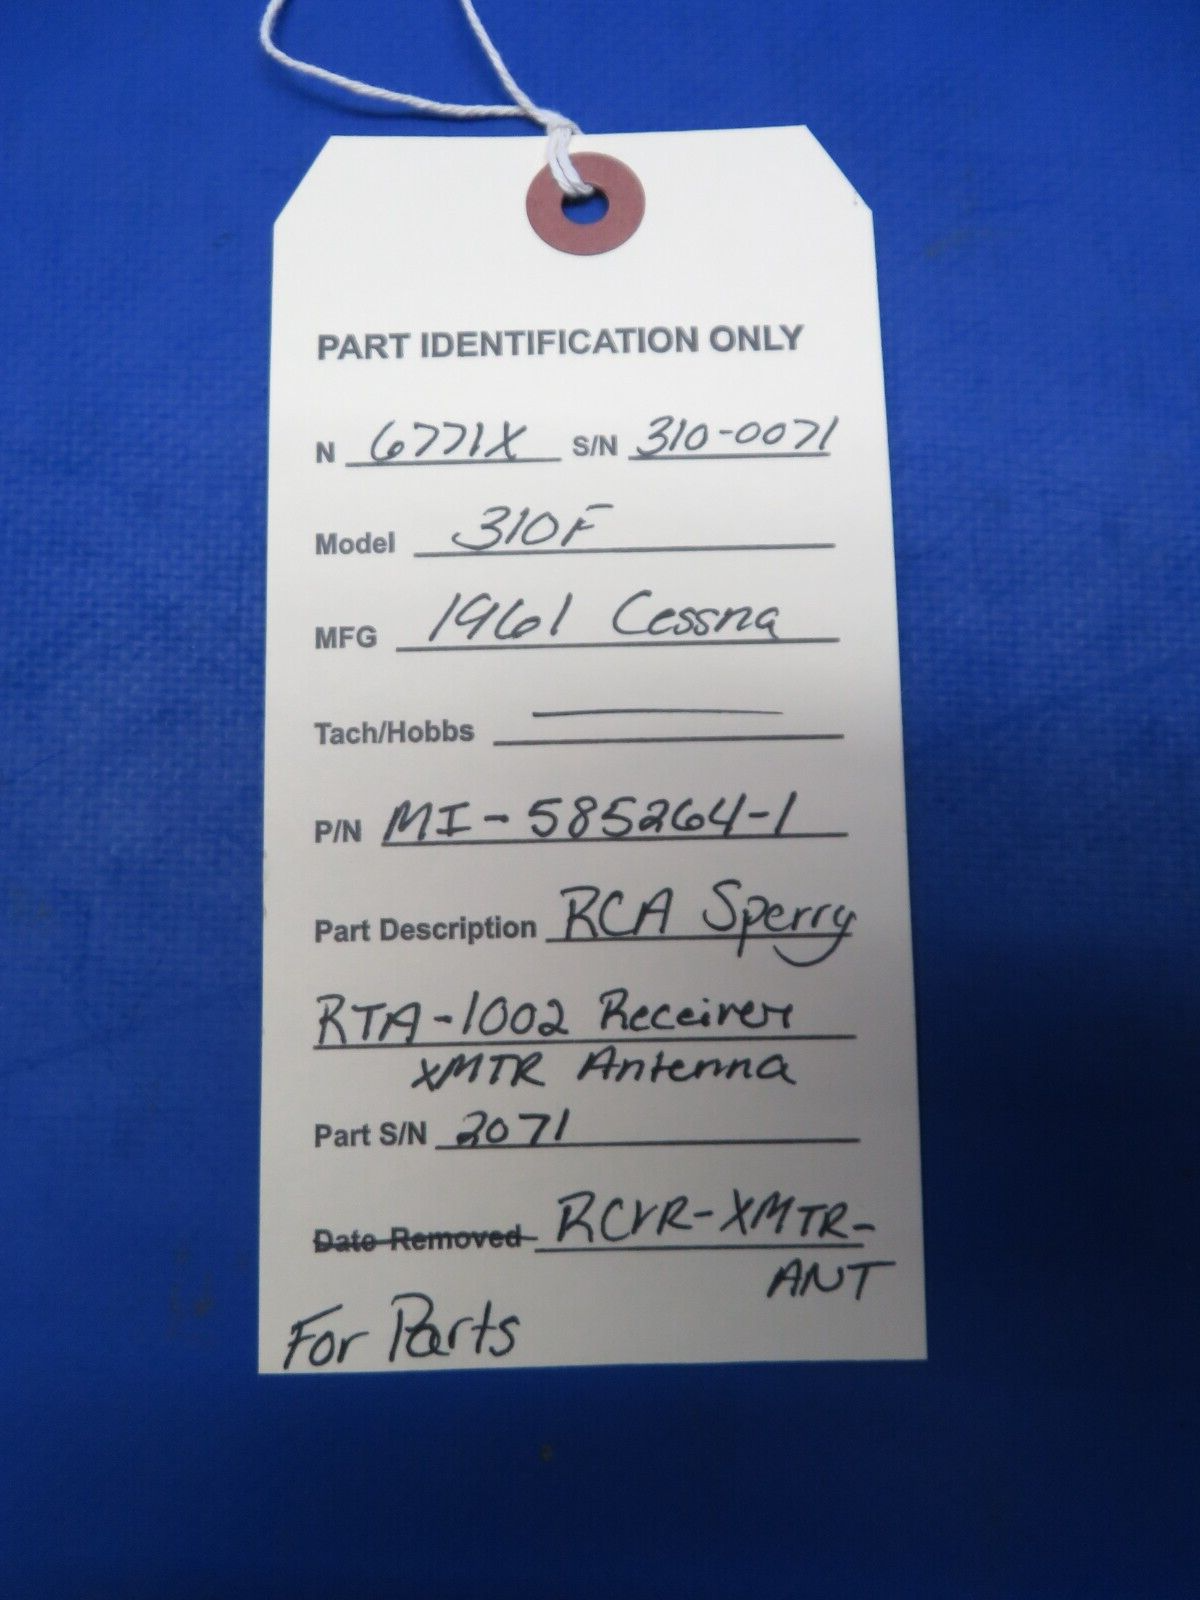 PART IDENTIFICATION ONLY
N 6771X S/N 310-0071
Model 310F
MFG 1961 Cessna
Tach/Hobbs —
P/N MI-585264-1
Part Description RCA Sperry
RTA-1002 Receiver
XMTR Antenna
Part S/N 2071
Date Removed RCVR-XMTR-
ANT
For Parts